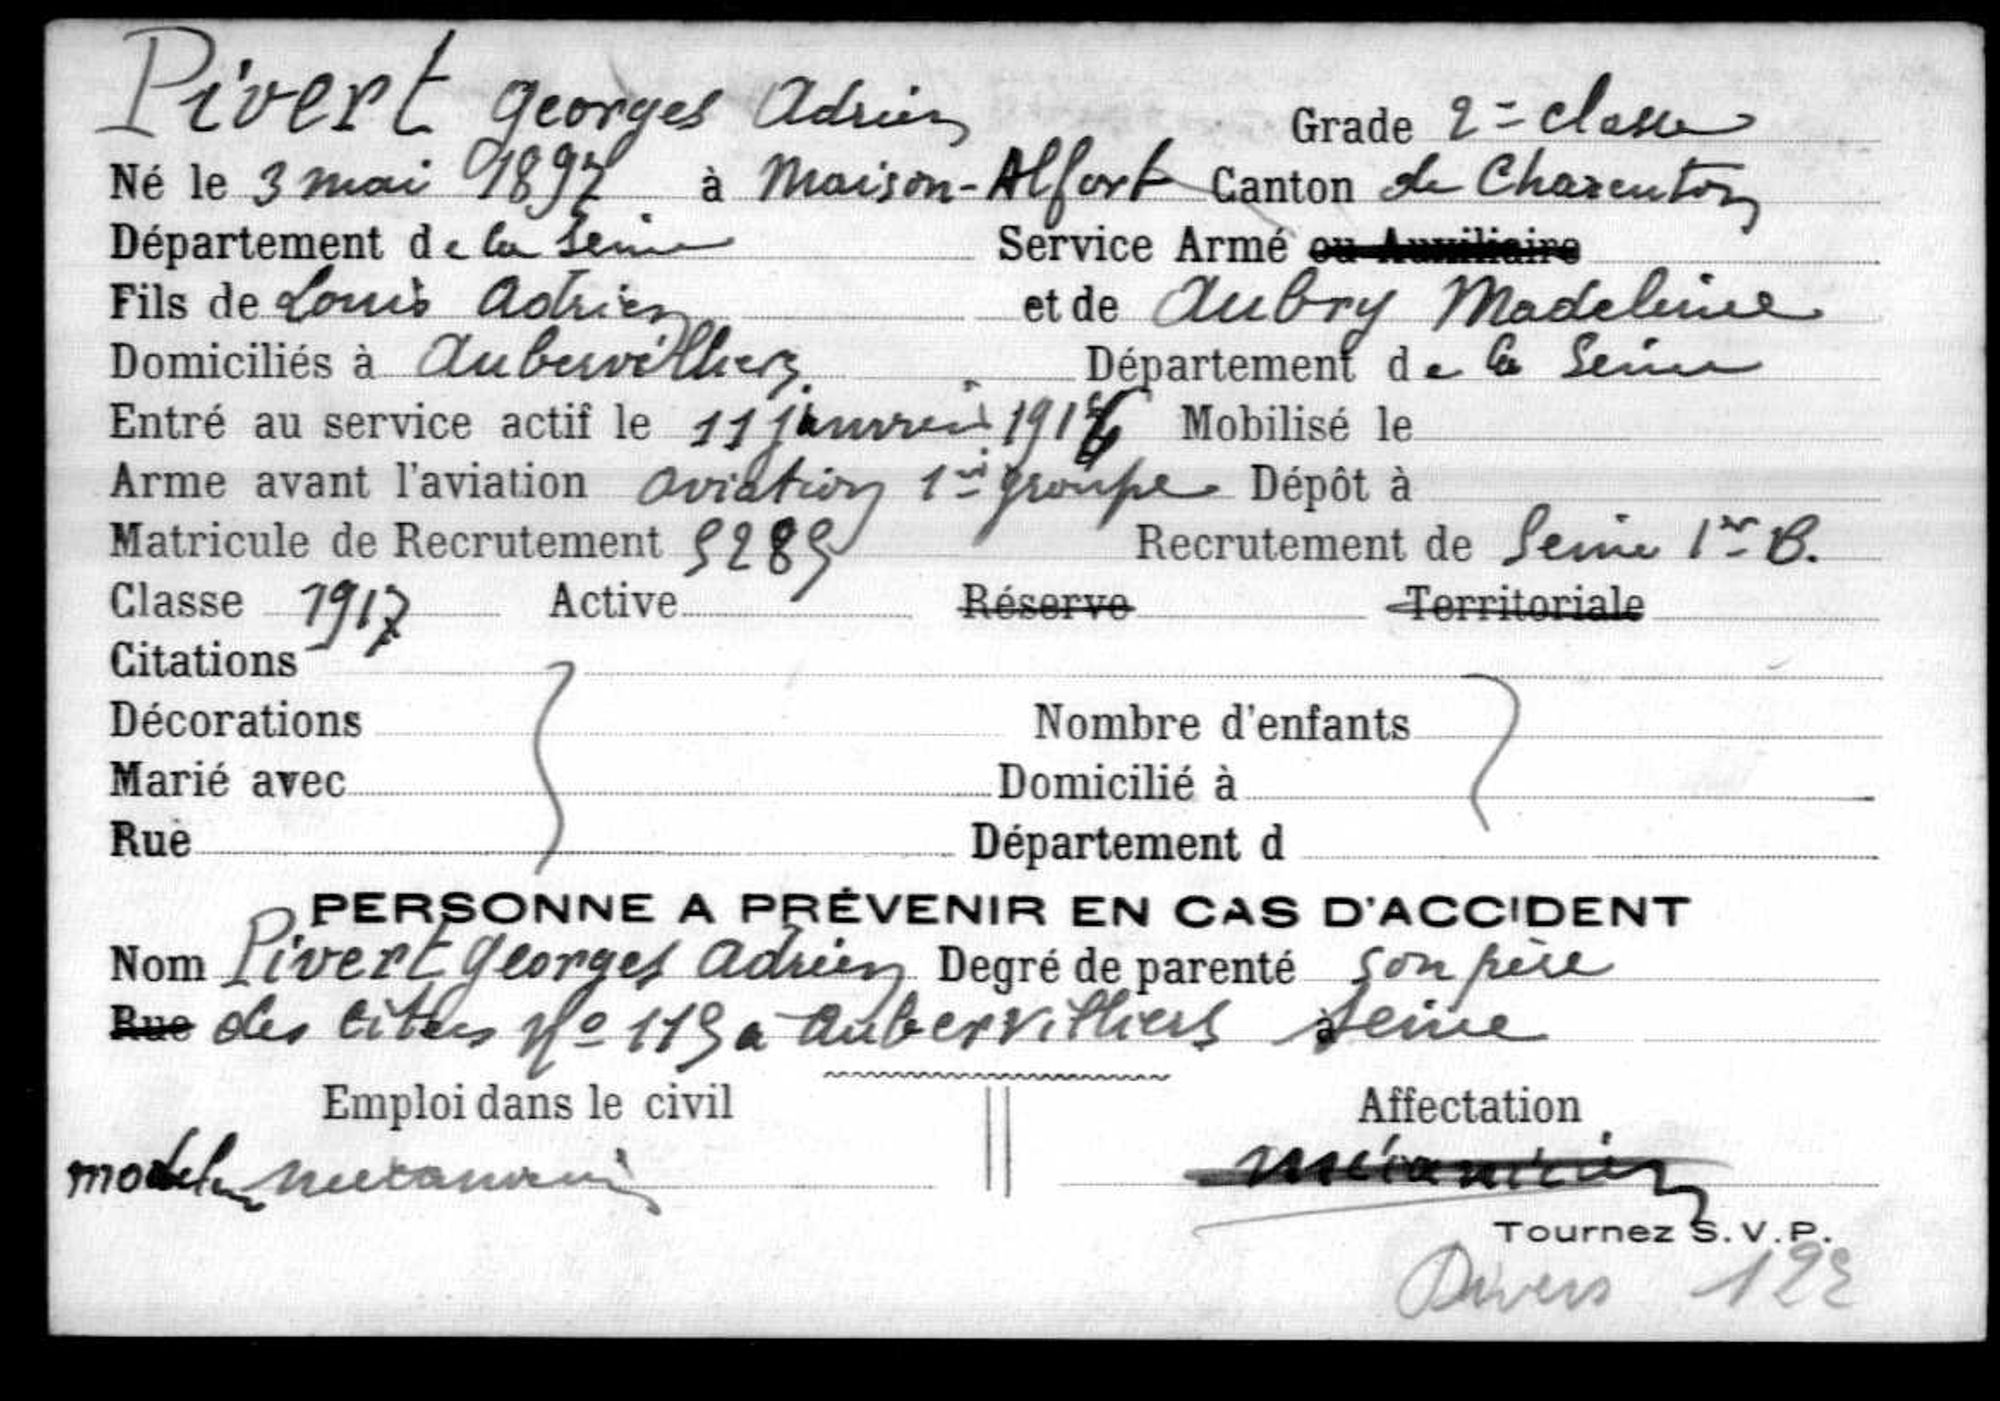 Pivert Georges Adrien Grade 2e classe
Né le 3 mai 1897 à Maison-Alfort Canton de Charenton
Département de la Seine Service Armé ou Auxiliaire
Fils de Louis Adrien et de Aubry Madeleine
Domiciliés à Aubervilliers Département de la Seine
Entré au service actif le 11 janvier 1916 Mobilisé le
Arme avant l'aviation aviation 1er groupe Dépôt à
Matricule de Recrutement 5285 Recrutement de Seine 1er B.
Classe 1917 Active Réserve Territoriale
Citations
Décorations Nombre d'enfants
Marié avec Domicilié à
Rue Département d
PERSONNE A PRÉVENIR EN CAS D'ACCIDENT
Nom Pivert Georges Adrien Degré de parenté son père
Rue des cités No 115 a Aubervilliers à Seine
Emploi dans le civil Affectation
mécanicien mécanicien
Tournez S.V.P.
Divers 122